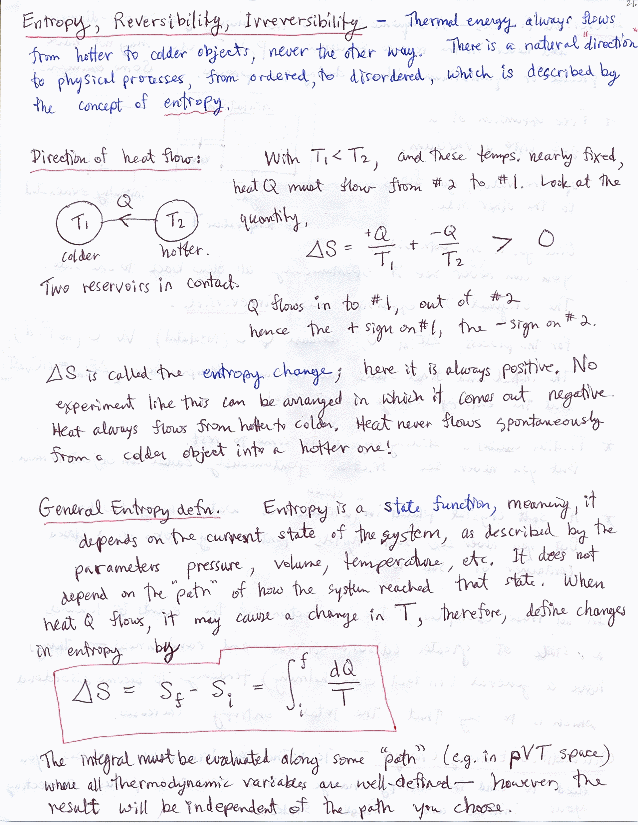 Entropy, Reversibility, Irreversibility – Thermal energy always flows
from hotter to colder objects, never the other way. There is a natural "direction"
to physical processes, from ordered, to disordered, which is described by
the concept of entropy.
Direction of heat flow: With T₁ < T₂, and these temps. nearly fixed,
heat Q must flow from #2 to #1. Look at the
quantity,
T₁ Q T₂
colder hotter.
ΔS = +Q/T₁ + -Q/T₂ > 0
Two reservoirs in contact.
Q flows in to #1, out of #2
hence the + sign on #1, the – sign on #2.
ΔS is called the entropy change; here it is always positive. No
experiment like this can be arranged in which it comes out negative.
Heat always flows from hotter to colder. Heat never flows spontaneously
from a colder object into a hotter one!
General Entropy defn. Entropy is a state function, meaning, it
depends on the current state of the system, as described by the
parameters pressure, volume, temperature, etc. It does not
depend on the "path" of how the system reached that state. When
heat Q flows, it may cause a change in T, therefore, define changes
in entropy by
ΔS = S_f - S_i = ∫_i^f dQ/T
The integral must be evaluated along some "path" (e.g. in pVT space)
where all thermodynamic variables are well-defined — however, the
result will be independent of the path you choose.